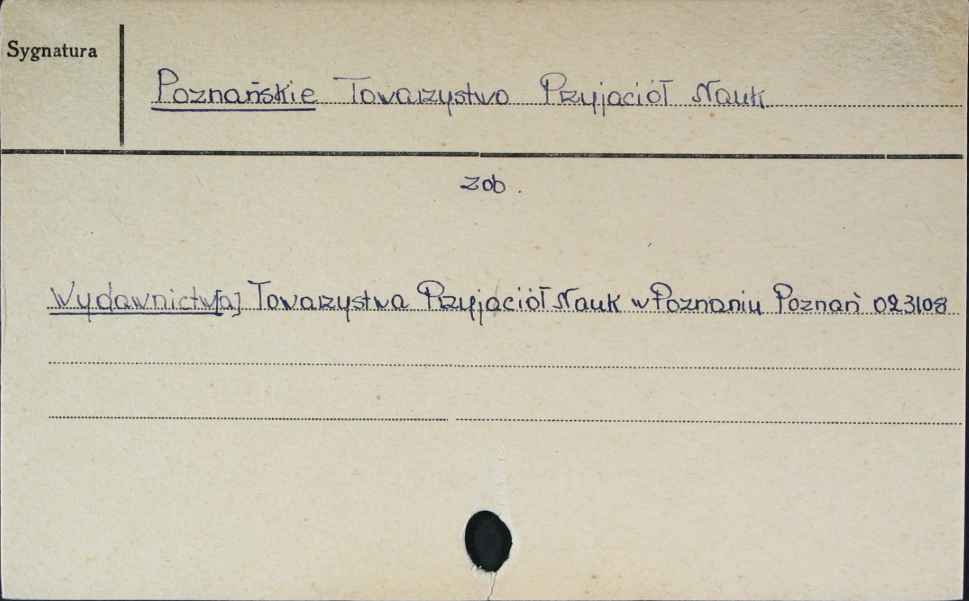 Sygnatura
Poznańskie Towarzystwo Przyjaciół Nauk
zob.
Wydawnictw[a] Towarzystwa Przyjaciół Nauk w Poznaniu Poznań 023108